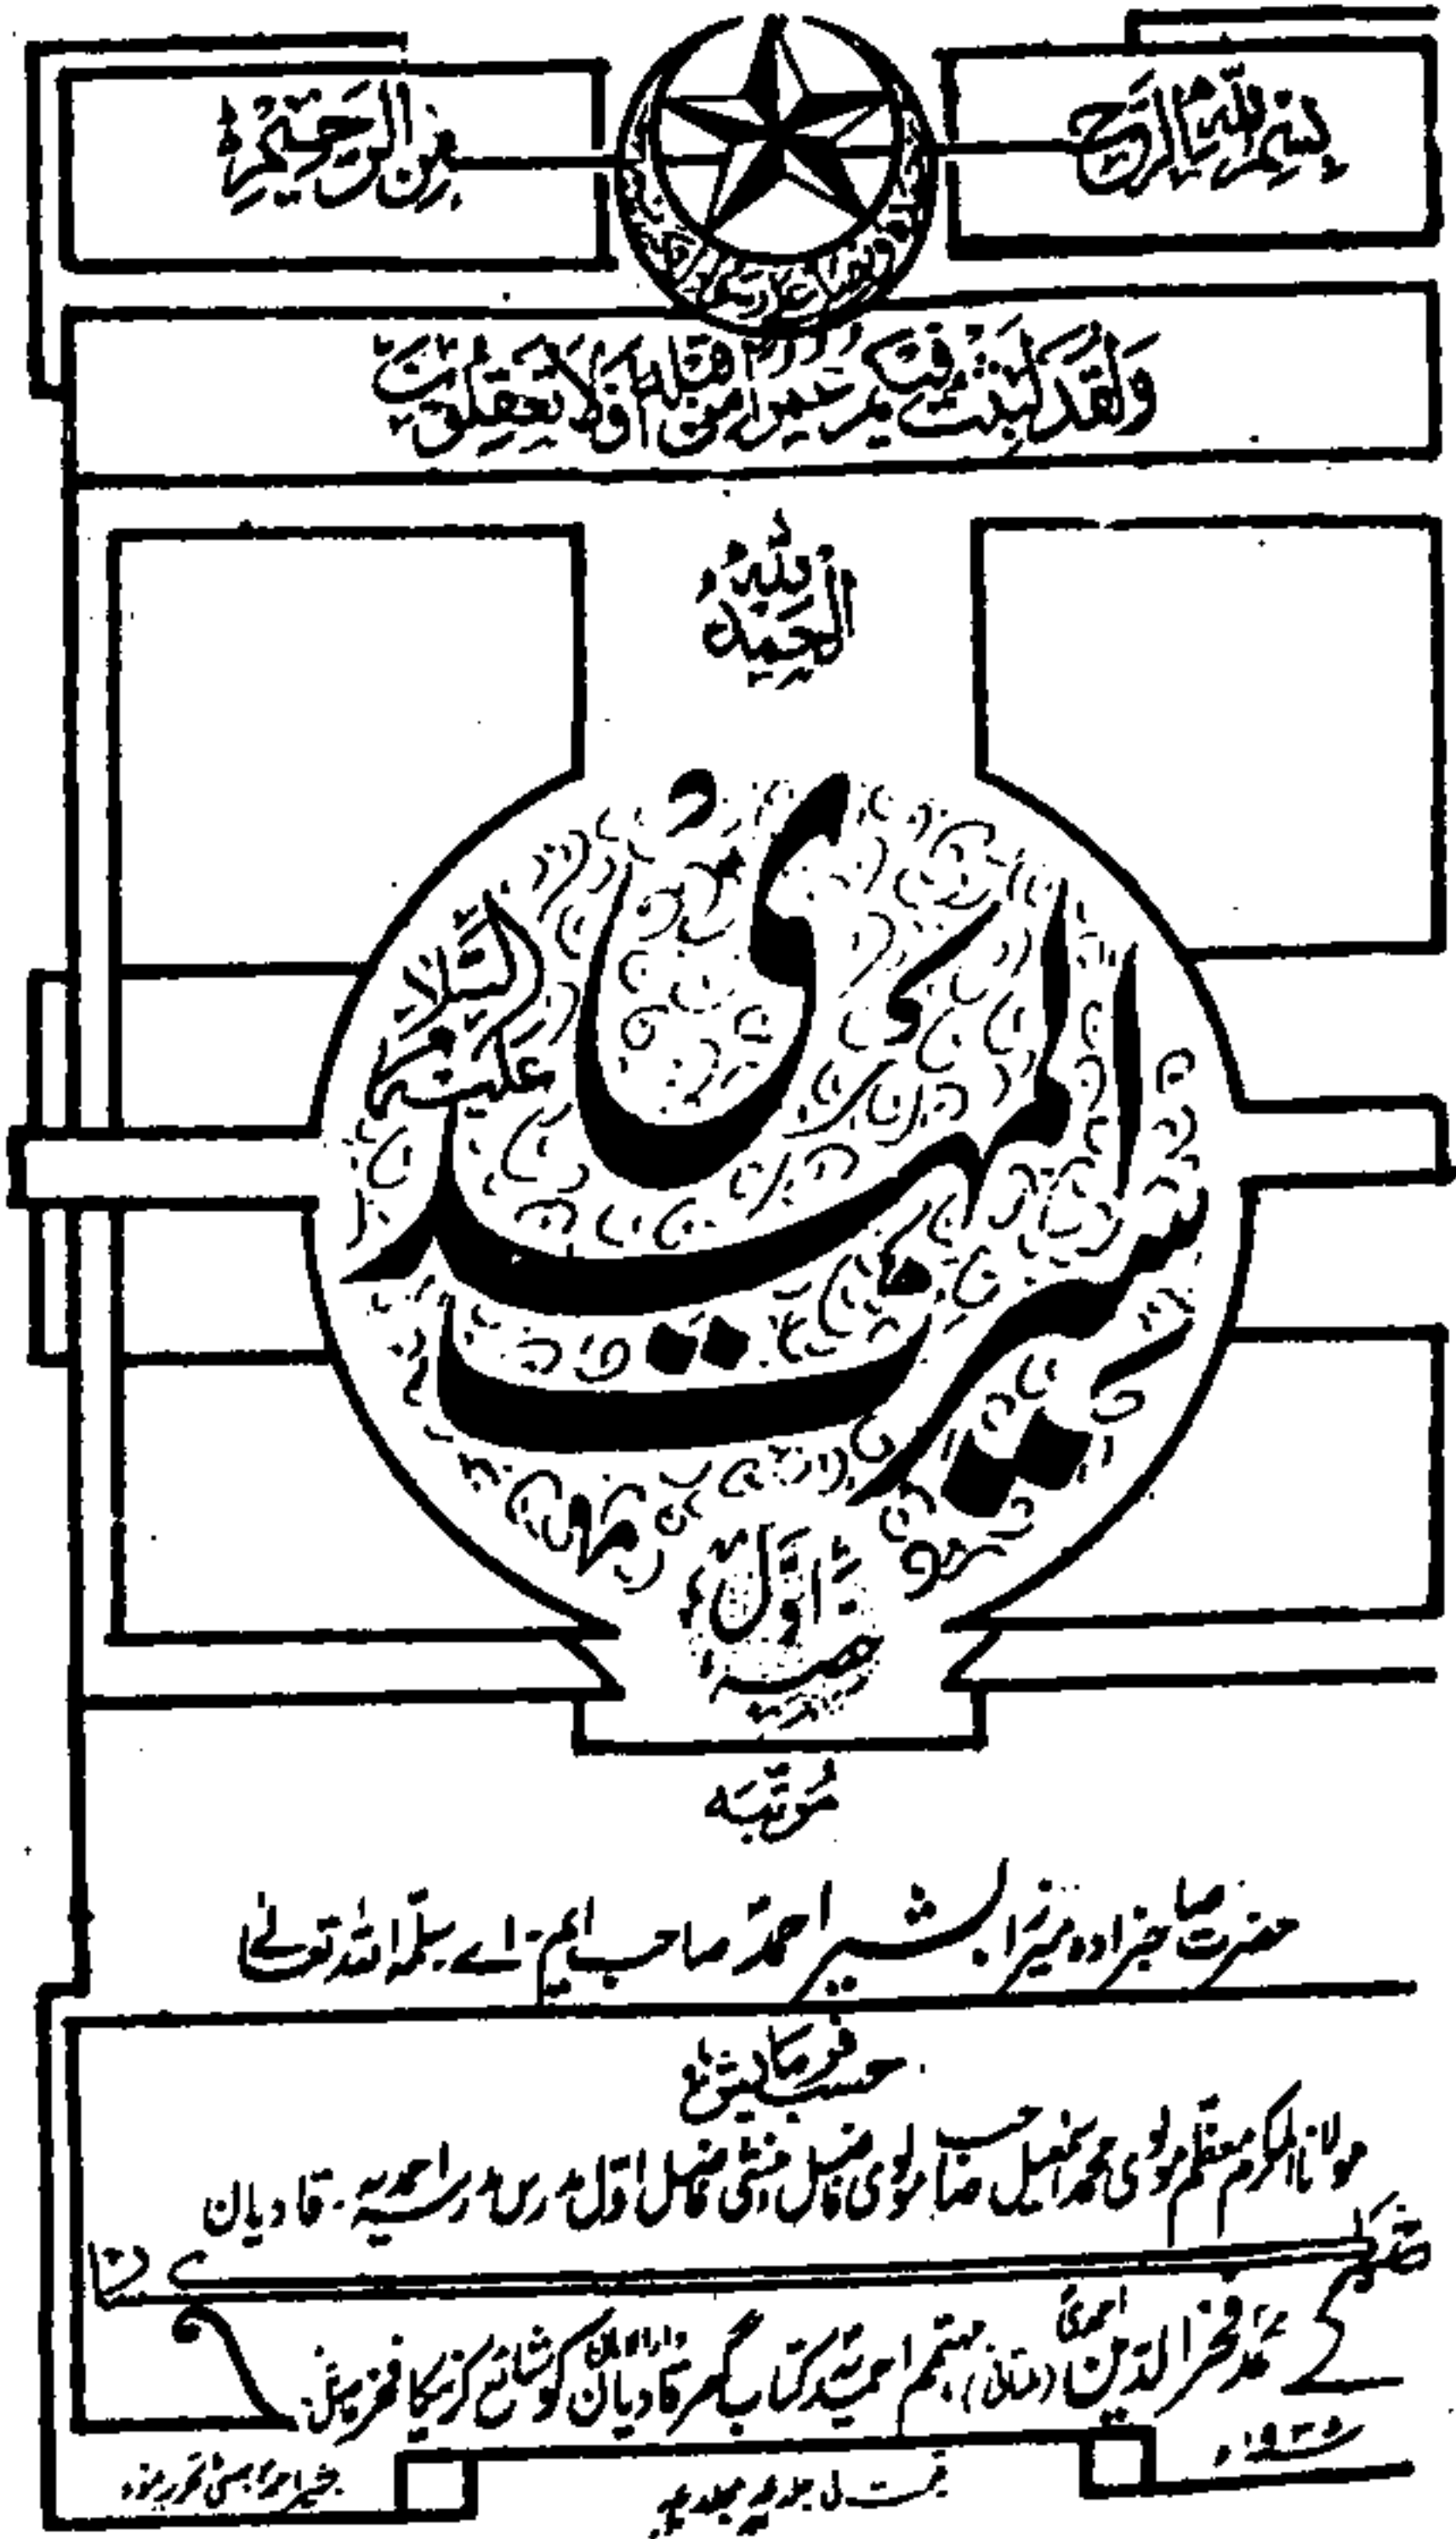 بِسْمِ اللهِ الرَّحْمٰنِ الرَّحِيْمِ
وَلَقَدْ لَبِثْتُ فِيكُمْ عُمُرًا مِّنْ قَبْلِهٖ اَفَلَا تَعْقِلُوْنَ
الْحَمْدُ لِلّٰهِ
سیرت المہدی
عَلَیْہِ السَّلَام
حصہ اوّل
مُرتّبہ
حضرت صاحبزادہ میرزا بشیر احمدؐ صاحب ایم-اے سلّمہ اللہ تعالیٰ
حسب فرمایش
مولانا المکرم معظم مولوی محمد اسمٰعیل صاحب مولوی فاضل منشی فاضل اوّل مدرس مدرسہ احمدیہ - قادیان
محمد فخر الدین احمدی (ملتانی) مہتمم احمدیہ کتاب گھر قادیان دارالامان کو شائع کرنیکا فخر حاصل
۱۹۳۵ء
قیمت مجلد